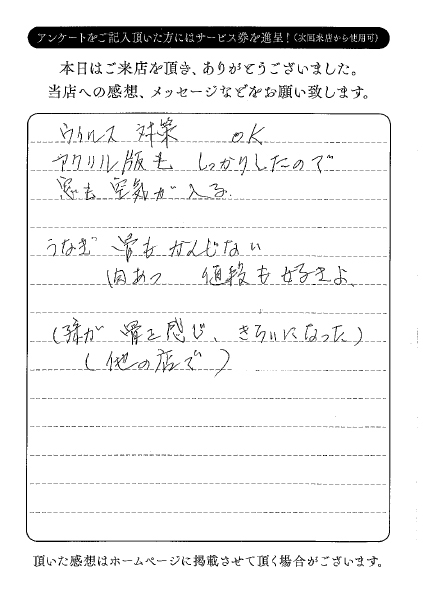 アンケートをご記入頂いた方にはサービス券を進呈!(次回来店から使用可)
本日はご来店を頂き、ありがとうございました。
当店への感想、メッセージなどをお願い致します。
ウイルス 対策 OK
アクリル版も しっかりしたので
窓も 空気が入る
うなぎ 骨も かんじない
肉あつ 値段も 好きよ、
(孫が 骨を感じ、きらいになった)
(他の店で)
頂いた感想はホームページに掲載させて頂く場合がございます。